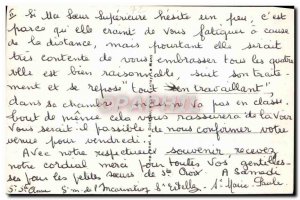 Si Ma Sœur Supérieure hésite un peu, c'est
parce qu'elle craint de vous fatiguer à cause
de la distance, mais pourtant elle serait
très contente de vous embrasser tous les quatre
elle est bien raisonnable, suit son traite-
ment et se repose "tout en travaillant",
dans sa chambre va pas en classe.
bout de même cela vous rassurera de la voir.
Vous serait-il possible de nous confirmer votre
venue pour vendredi.
Avec notre respectueux souvenir recevez
notre cordial merci pour toutes vos gentilles-
ses pour les petites sœurs de Ste Croix. A Samedi
Sr Ste Anne Sr m. de l'Incarnation Sr Estelle Sr Marie Paule